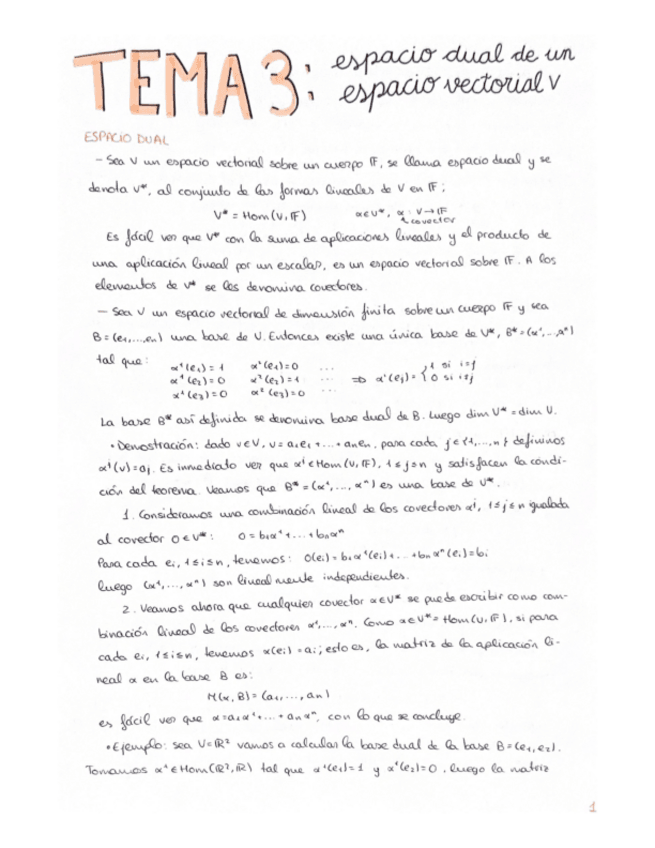 TEMA 3: espacio dual de un
espacio vectorial V
ESPACIO DUAL
– Sea V un espacio vectorial sobre un cuerpo 𝔽, se llama espacio dual y se
denota V*, al conjunto de las formas lineales de V en 𝔽;
V* = Hom(V, 𝔽) α∈V*, α: V→𝔽
covector
Es fácil ver que V* con la suma de aplicaciones lineales y el producto de
una aplicación lineal por un escalar, es un espacio vectorial sobre 𝔽. A los
elementos de V* se les denomina covectores.
– Sea V un espacio vectorial de dimensión finita sobre un cuerpo 𝔽 y sea
B=(e₁,...,eₙ) una base de V. Entonces existe una única base de V*, B*=(α¹,...,αⁿ)
tal que:
α¹(e₁)=1 α²(e₁)=0 ...
α¹(e₂)=0 α²(e₂)=1 ... ⟹ αⁱ(eⱼ)={1 si i=j
α¹(e₃)=0 α²(e₃)=0 ... 0 si i≠j
La base B* así definida se denomina base dual de B. Luego dim V* = dim V.
• Demostración: dado v∈V, v=a₁e₁+...+aₙeₙ, para cada j∈{1,...,n} definimos
αʲ(v)=aⱼ. Es inmediato ver que αʲ∈Hom(V,𝔽), 1≤j≤n y satisfacen la condi-
ción del teorema. Veamos que B*=(α¹,...,αⁿ) es una base de V*.
1. Consideramos una combinación lineal de los covectores αʲ, 1≤j≤n igualada
al covector 0∈V*: 0=b₁α¹+...+bₙαⁿ
Para cada eᵢ, 1≤i≤n, tenemos: 0(eᵢ)=b₁α¹(eᵢ)+...+bₙαⁿ(eᵢ)=bᵢ
luego (α¹,...,αⁿ) son linealmente independientes.
2. Veamos ahora que cualquier covector α∈V* se puede escribir como com-
binación lineal de los covectores α¹,...,αⁿ. Como α∈V*=Hom(V,𝔽), si para
cada eᵢ, 1≤i≤n, tenemos α(eᵢ)=aᵢ; esto es, la matriz de la aplicación li-
neal α en la base B es:
M(α,B)=(a₁,...,aₙ)
es fácil ver que α=a₁α¹+...+aₙαⁿ, con lo que se concluye.
• Ejemplo: sea V=ℝ² vamos a calcular la base dual de la base B=(e₁,e₂).
Tomamos α¹∈Hom(ℝ²,ℝ) tal que α¹(e₁)=1 y α¹(e₂)=0, luego la matriz
1